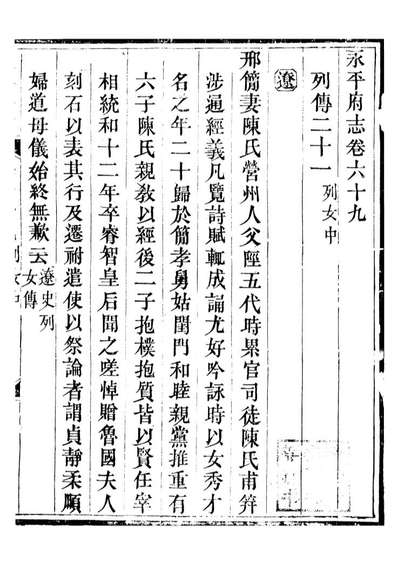 永平府志卷六十九
列傳二十一 列女中
遼
邢簡妻陳氏營州人父陘五代時累官司徒陳氏甫笄
涉通經義凡覽詩賦輒成誦尤好吟詠時以女秀才
名之年二十歸於簡孝舅姑閨門和睦親黨推重有
六子陳氏親教以經後二子抱樸抱質皆以賢任宰
相統和十二年卒睿智皇后聞之嗟悼贈魯國夫人
刻石以表其行及遷祔遣使以祭論者謂貞靜柔順
婦道母儀始終無歉云 遼史列女傳